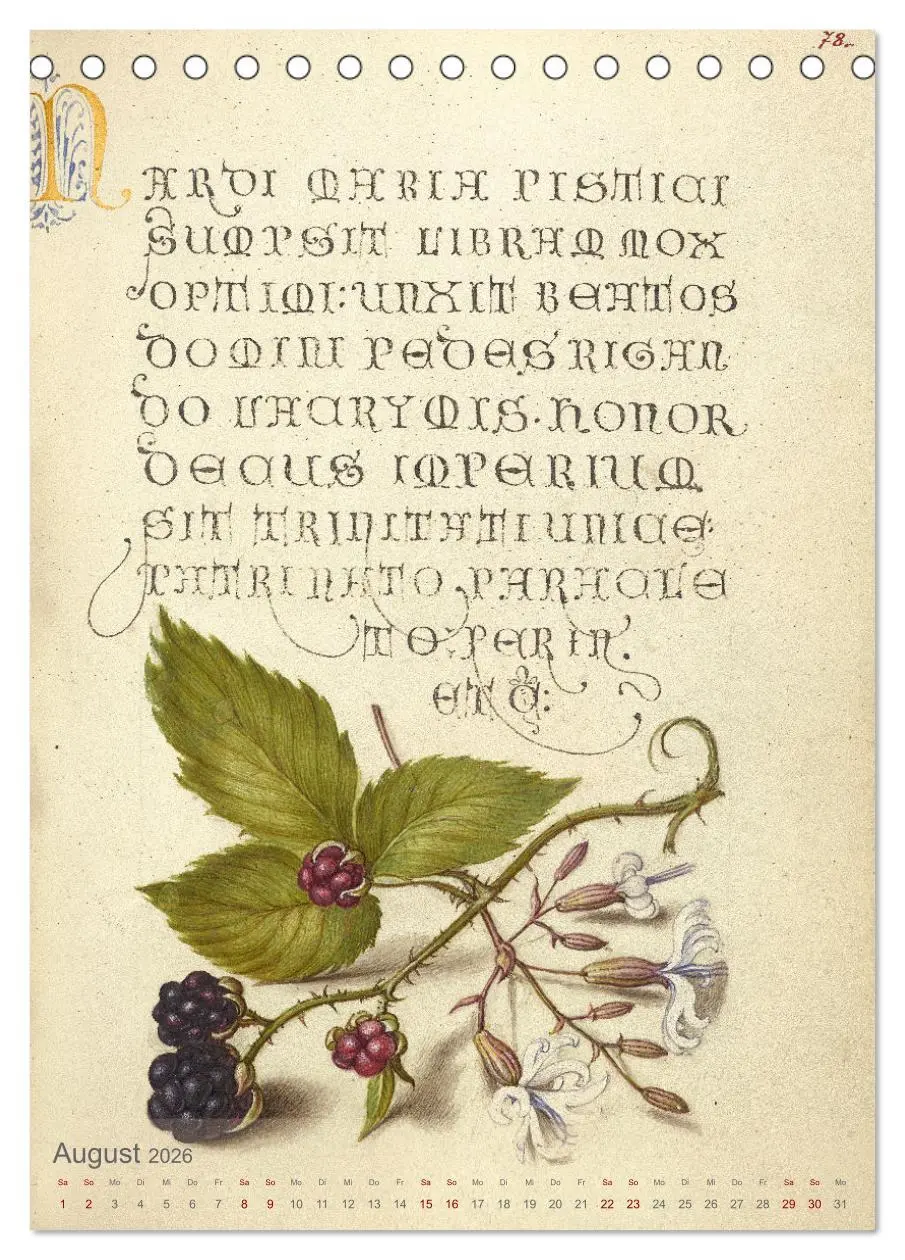 78.
NARDI MARIA PISTICI
SUMPSIT LIBRAM MOX
OPTIMI: UNXIT BEATOS
DOMINI PEDES RIGAN
DO LACRYMIS. HONOR
DECUS IMPERIUM
SIT TRINITATI UNICE:
PATRI NATO. PARACLE
TO. PER IN.
ET C:
August 2026
Sa So Mo Di Mi Do Fr Sa So Mo Di Mi Do Fr Sa So Mo Di Mi Do Fr Sa So Mo Di Mi Do Fr Sa So Mo
1 2 3 4 5 6 7 8 9 10 11 12 13 14 15 16 17 18 19 20 21 22 23 24 25 26 27 28 29 30 31